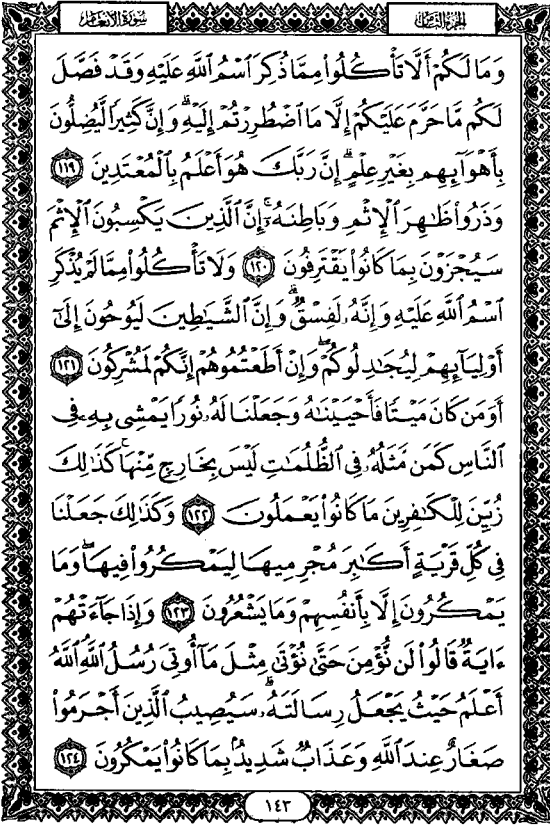 سُورَةُ الأَنْعَامِ
الجُزْءُ الثَّامِنُ
وَمَا لَكُمْ أَلَّا تَأْكُلُوا۟ مِمَّا ذُكِرَ ٱسْمُ ٱللَّهِ عَلَيْهِ وَقَدْ فَصَّلَ
لَكُم مَّا حَرَّمَ عَلَيْكُمْ إِلَّا مَا ٱضْطُرِرْتُمْ إِلَيْهِ ۗ وَإِنَّ كَثِيرًا لَّيُضِلُّونَ
بِأَهْوَآئِهِم بِغَيْرِ عِلْمٍ ۗ إِنَّ رَبَّكَ هُوَ أَعْلَمُ بِٱلْمُعْتَدِينَ ١١٩
وَذَرُوا۟ ظَـٰهِرَ ٱلْإِثْمِ وَبَاطِنَهُۥٓ ۚ إِنَّ ٱلَّذِينَ يَكْسِبُونَ ٱلْإِثْمَ
سَيُجْزَوْنَ بِمَا كَانُوا۟ يَقْتَرِفُونَ ١٢٠ وَلَا تَأْكُلُوا۟ مِمَّا لَمْ يُذْكَرِ
ٱسْمُ ٱللَّهِ عَلَيْهِ وَإِنَّهُۥ لَفِسْقٌ ۗ وَإِنَّ ٱلشَّيَـٰطِينَ لَيُوحُونَ إِلَىٰٓ
أَوْلِيَآئِهِمْ لِيُجَـٰدِلُوكُمْ ۖ وَإِنْ أَطَعْتُمُوهُمْ إِنَّكُمْ لَمُشْرِكُونَ ١٢١
أَوَمَن كَانَ مَيْتًا فَأَحْيَيْنَـٰهُ وَجَعَلْنَا لَهُۥ نُورًا يَمْشِى بِهِۦ فِى
ٱلنَّاسِ كَمَن مَّثَلُهُۥ فِى ٱلظُّلُمَـٰتِ لَيْسَ بِخَارِجٍ مِّنْهَا ۚ كَذَٰلِكَ
زُيِّنَ لِلْكَـٰفِرِينَ مَا كَانُوا۟ يَعْمَلُونَ ١٢٢ وَكَذَٰلِكَ جَعَلْنَا
فِى كُلِّ قَرْيَةٍ أَكَـٰبِرَ مُجْرِمِيهَا لِيَمْكُرُوا۟ فِيهَا ۖ وَمَا
يَمْكُرُونَ إِلَّا بِأَنفُسِهِمْ وَمَا يَشْعُرُونَ ١٢٣ وَإِذَا جَآءَتْهُمْ
ءَايَةٌ قَالُوا۟ لَن نُّؤْمِنَ حَتَّىٰ نُؤْتَىٰ مِثْلَ مَآ أُوتِىَ رُسُلُ ٱللَّهِ ۘ ٱللَّهُ
أَعْلَمُ حَيْثُ يَجْعَلُ رِسَالَتَهُۥ ۗ سَيُصِيبُ ٱلَّذِينَ أَجْرَمُوا۟
صَغَارٌ عِندَ ٱللَّهِ وَعَذَابٌ شَدِيدٌۢ بِمَا كَانُوا۟ يَمْكُرُونَ ١٢٤
١٤٣